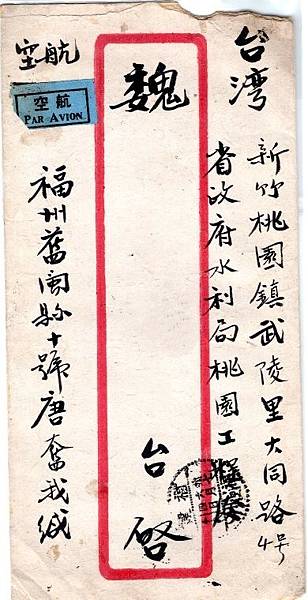 台湾
新竹桃園鎮武陵里大同路4号
省政府水利局桃園工程處
魏
台啓
空航
空航
PAR AVION
福州舊閩縣十號唐奮我緘